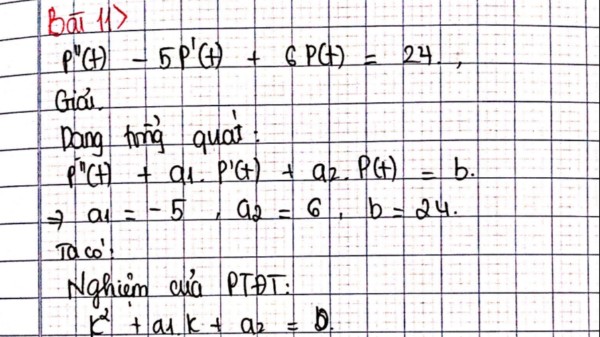 Bài 11>
P"(t) - 5P'(t) + 6P(t) = 24.,
Giải.
Dạng tổng quát:
P"(t) + a1. P'(t) + a2. P(t) = b.
⇒ a1 = -5 , a2 = 6 , b = 24.
Ta có:
Nghiệm của PTĐT:
k² + a1.k + a2 = 0.